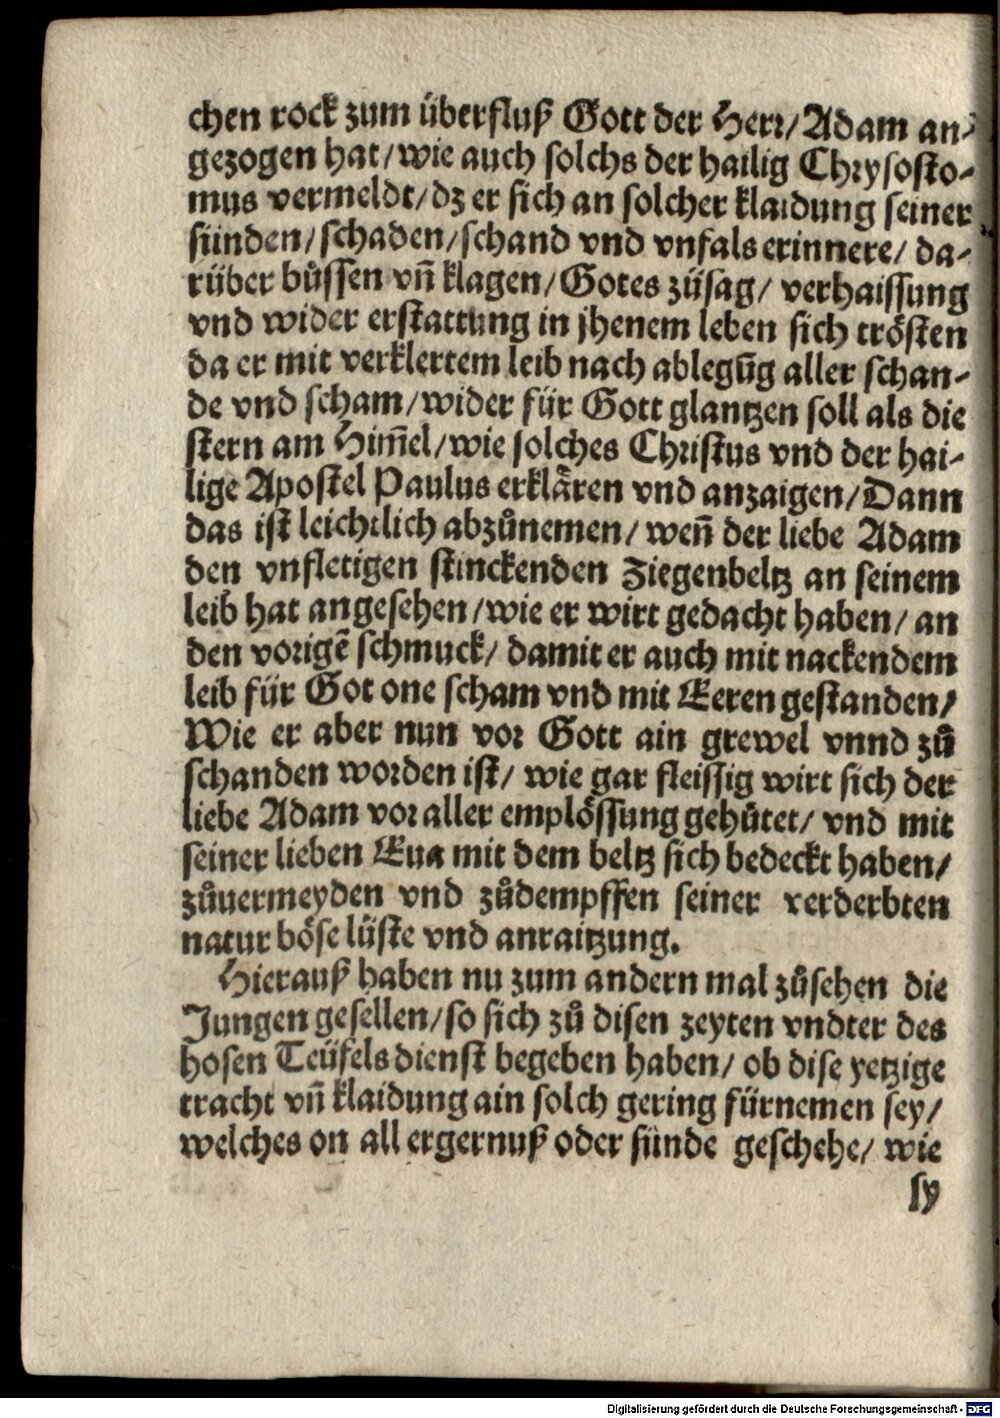 chen rock zum überfluß Gott der Herr/Adam an-
gezogen hat/wie auch solchs der hailig Chrysosto-
mus vermeldt/dz er sich an solcher klaidung seiner
sünden/schaden/schand vnd vnfals erinnere/ da-
rüber bůssen vñ klagen/Gotes zůsag/ verhaissung
vnd wider erstattung in jhenem leben sich trösten
da er mit verklertem leib nach ablegũg aller schan-
de vnd scham/wider für Gott glantzen soll als die
stern am Him̃el/wie solches Christus vnd der hai-
lige Apostel Paulus erklären vnd anzaigen/Dann
das ist leichtlich abzůnemen/ weñ der liebe Adam
den vnfletigen stinckenden Ziegenbeltz an seinem
leib hat angesehen/wie er wirt gedacht haben/ an
den vorigẽ schmuck/ damit er auch mit nackendem
leib für Got one scham vnd mit Eeren gestanden/
Wie er aber nun vor Gott ain grewel vnnd zů
schanden worden ist/ wie gar fleissig wirt sich der
liebe Adam vor aller emplössung gehůtet/ vnd mit
seiner lieben Eua mit dem beltz sich bedeckt haben/
zůuermeyden vnd zůdempffen seiner verderbten
natur böse lüste vnd anraitzung.
Hierauß haben nu zum andern mal zůsehen die
Jungen gesellen/so sich zů disen zeyten vndter des
hosen Teüfels dienst begeben haben/ ob dise yetzige
tracht vñ klaidung ain solch gering fürnemen sey/
welches on all ergernuß oder sünde geschehe/ wie
sy
Digitalisierung gefördert durch die Deutsche Forschungsgemeinschaft - DFG